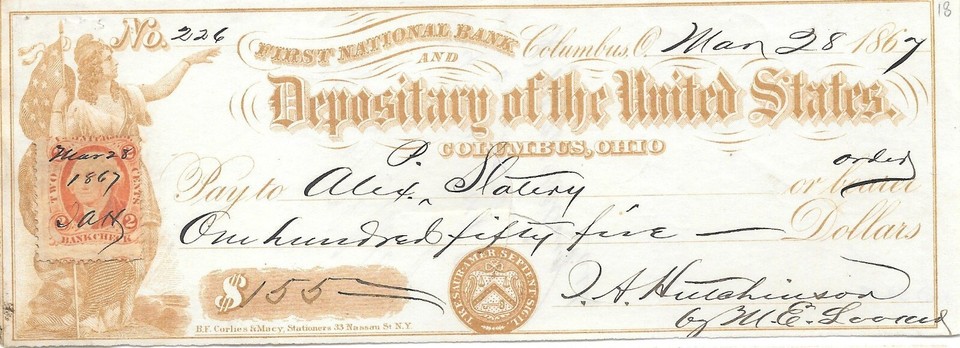 18
No. 226
FIRST NATIONAL BANK
AND
Columbus, O. Mar 28 1867
Depositary of the United States.
COLUMBUS, OHIO
Pay to Alex. P. Slatery or bearer order
One hundred fifty five — Dollars
$155
I. A. Hutchinson
by M. E.
TWO CENTS
2 2
BANK CHECK
Mar 28
1867
THESAUR. AMER. SEPTENT. SIGIL.
H.F. Corlies & Macy, Stationers 33 Nassau St. N.Y.